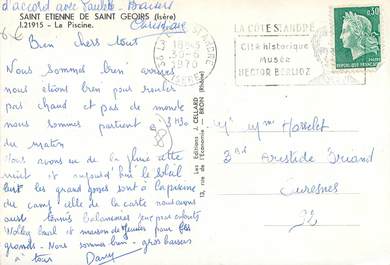 d'accord avec Paulette - Baisers
SAINT ETIENNE DE SAINT GEOIRS (Isère)
I.21915 - La Piscine.
Bien chers tout
Nous sommes bien arrivés
nous étions bien pour rouler
pas chaud et pas de monde
nous sommes partient à 3H30
du matin
Nous avons eu de la pluie cette
nuit et aujourd'hui le soleil
les grand gosses sont à la piscine
du camp elle de la carte nous avons
aussi tennis balancoires pour enfants
Wolley ball et maison de jeunes pour les
grands - Nous sommes bien - gros baisers
à tous Dany
Les Editions J. CELLARD
13, rue de l'Economie - BRON (Rhône)
38 LA COTE ST ANDRE
1970
ISERE
LA CÔTE S! ANDRÉ
Cité historique
Musée
HECTOR BERLIOZ
0,30
REPUBLIQUE FRANÇAISE
Mr Mme Hosselet
3 Bd Aristide Briand
Suresnes
92